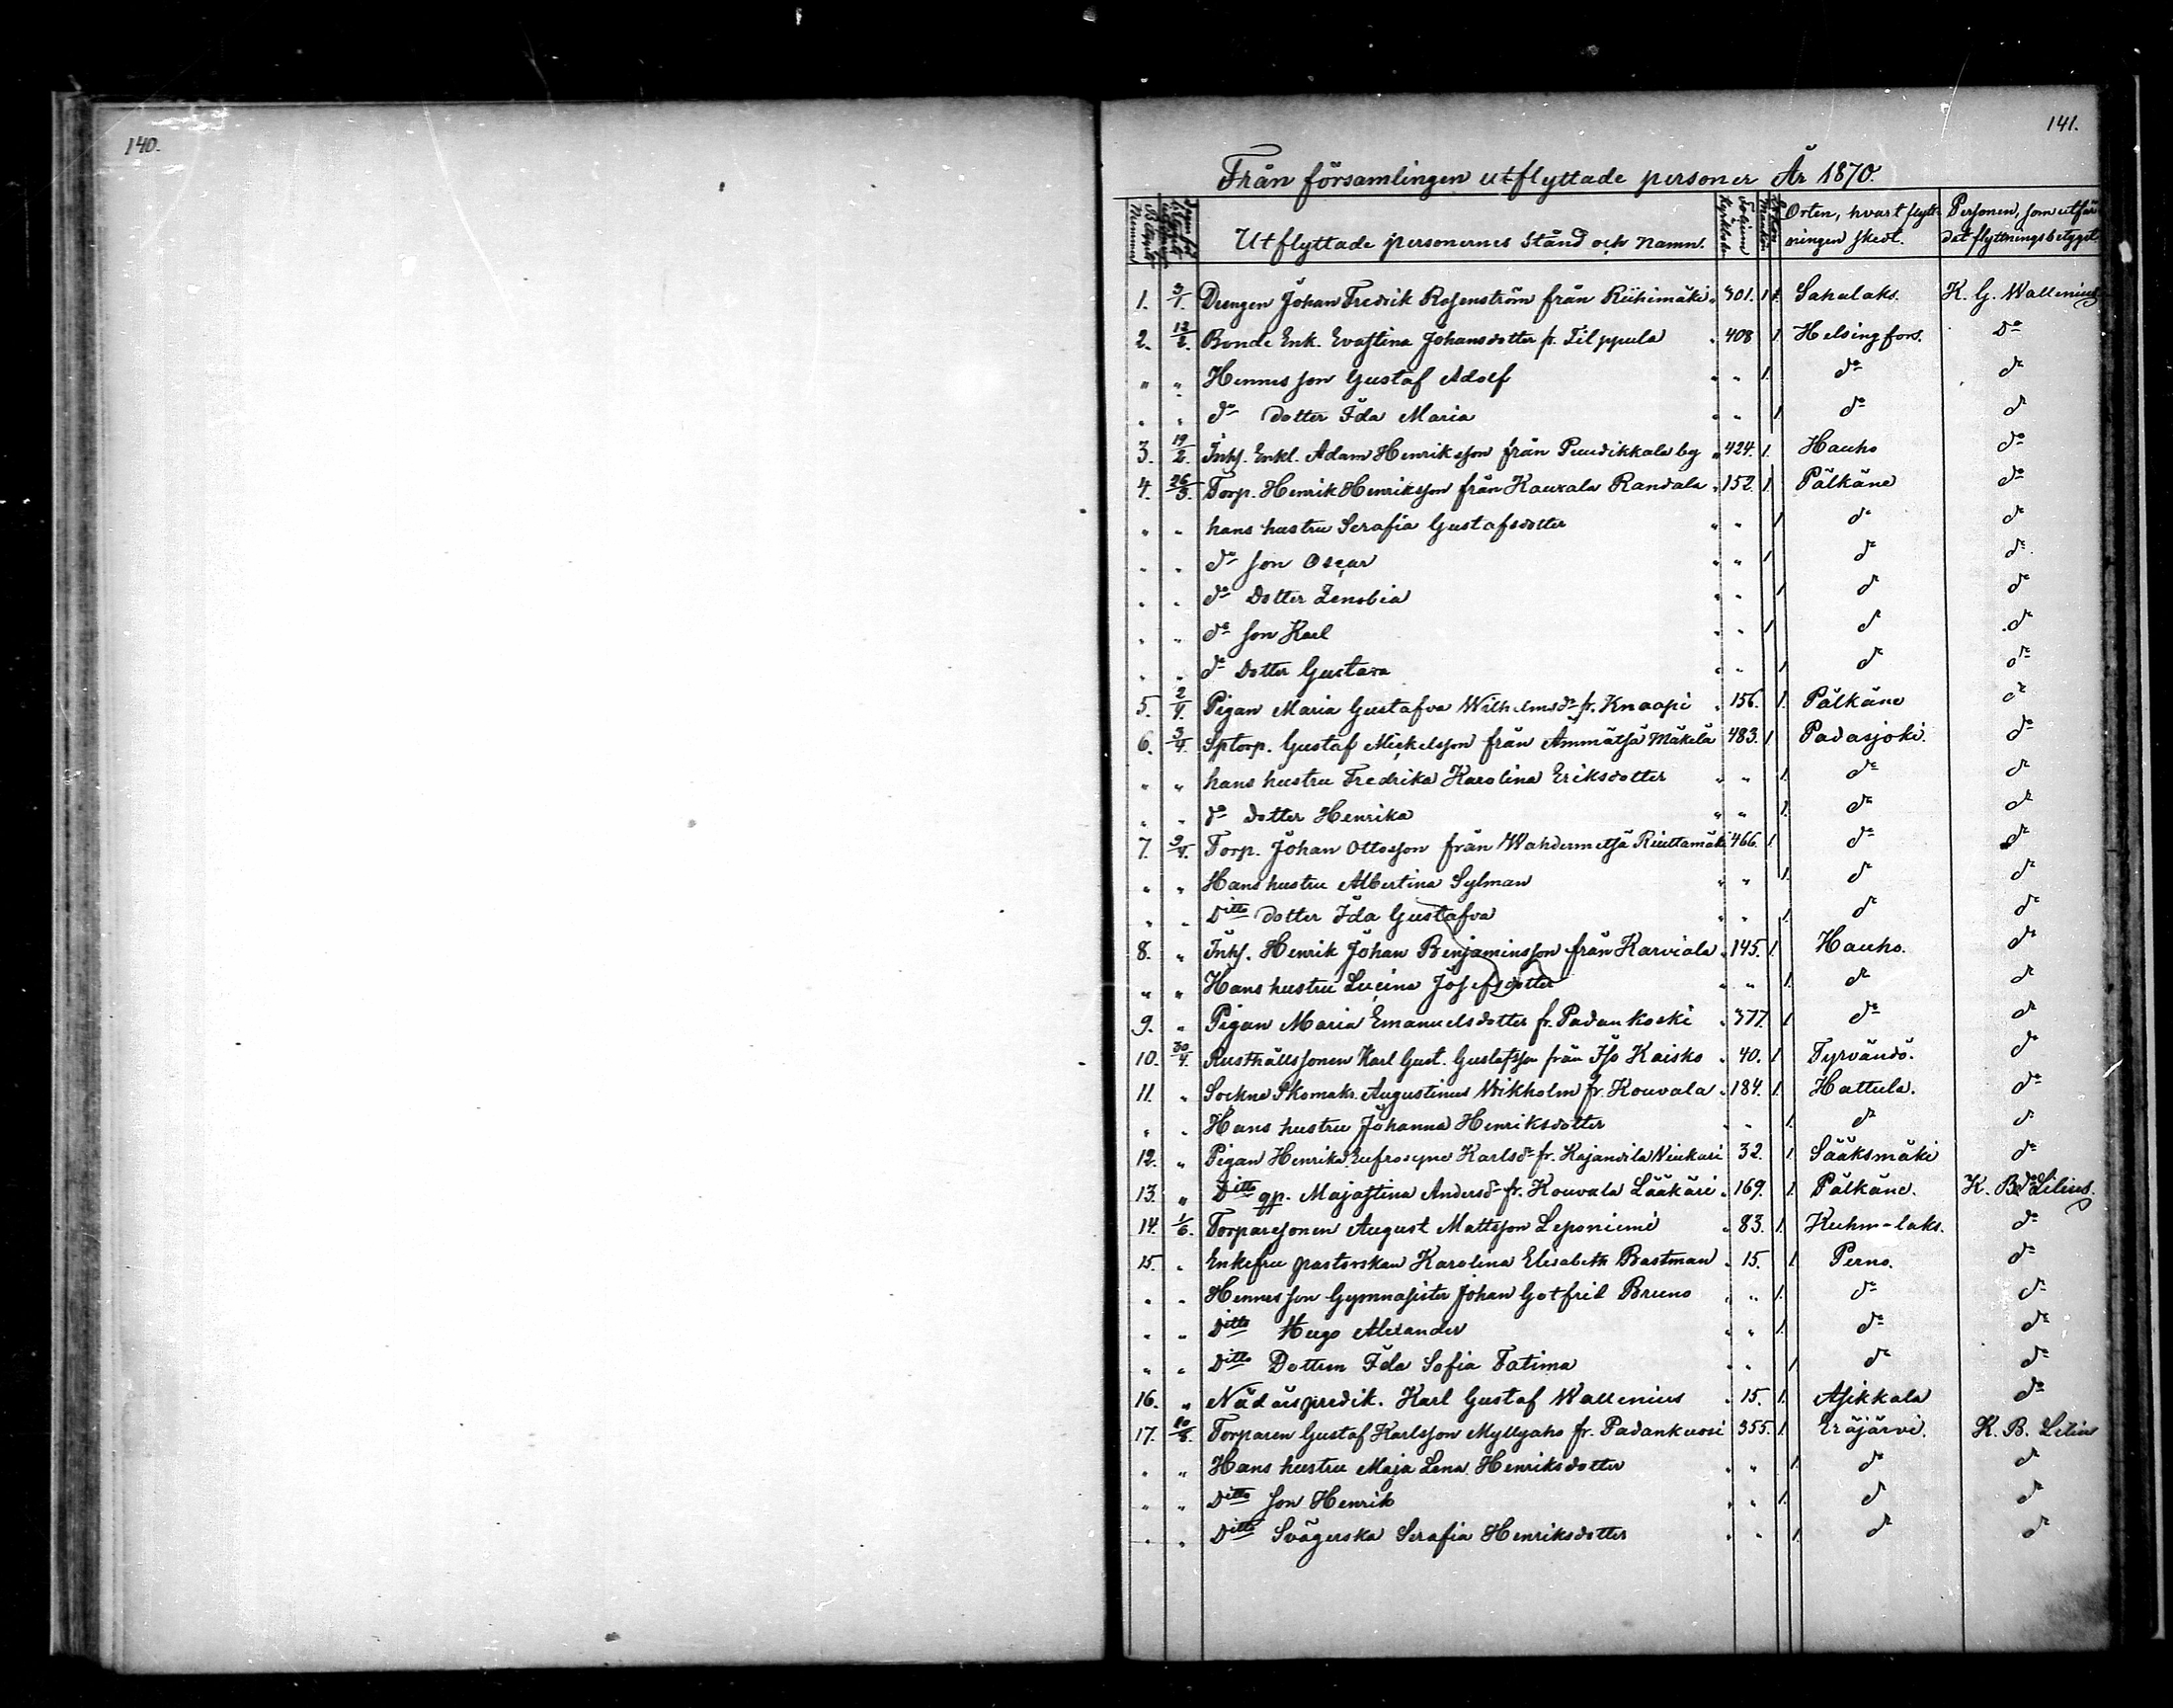 140.
141.
Från församlingen utflyttade personer År 1870.
Utflyttade personernes Stånd och namn. Orten, hvart flytt- Personen, som utfär-
ningen skedt. dat flyttningsbetyget
1. 3/1. Drengen Johan Fredrik Rosenström från Riihimäki 301. 1 Sahalaks. K. G. Wallenius
2. 12/2. Bonde Enk. Evastina Johansdotter fr. Tilppula " 408 1. Helsingfors. Do
" " Hennes son Gustaf Adolf " " 1. do do
" " do dotter Ida Maria " " 1. do do
3. 19/2. Inhs. Enkl. Adam Henriksson från Puudikkala by " 424. 1. Hauho do
4. 26/3. Torp. Henrik Henriksson från Kauxala Randala " 152. 1. Pälkäne do
" " hans hustru Serafia Gustafsdotter " " 1. do do
" " do son Oscar " " 1. do do
" " do Dotter Zenobia " " 1. do do
" " do son Karl " " 1. do do
" " do Dotter Gustava " " 1. do do
5. 2/4. Pigan Maria Gustafva Wilhelmsdr fr. Knaapi " 156. 1. Pälkäne do
6. 3/4. Sptorp. Gustaf Mickelsson från Ämmätsä Mäkelä 483. 1. Padasjoki. do
" " hans hustru Fredrika Karolina Eriksdotter " " 1. do do
" " do dotter Henrika " " 1. do do
7. 9/4. Torp. Johan Ottosson från Wahdermetsä Riuttamäki 466. 1. do do
" " Hans hustru Albertina Sylman " " 1. do do
" " Ditto dotter Ida Gustafva " " 1. do do
8. " Inhs. Henrik Johan Benjaminsson från Karviala " 145. 1. Hauho. do
" " Hans hustru Lucina Josefsdotter " " 1. do do
9. " Pigan Maria Emanuelsdotter fr. Padankoski " 377. 1. do do
10. 30/4. Rusthållssonen Karl Gust. Gustafsson från Iso Kaisko " 40. 1. Tyrvändö. do
11. " Sockne Skomak. Augustinus Wikholm fr. Kouvala " 184. 1. Hattula. do
" " Hans hustru Johanna Henriksdotter " " 1. do do
12. " Pigan Henrika Eufrosyne Karlsdr fr. Kajandila Niukari 32. 1. Sääksmäki do
13. " Ditto qp. Majastina Andersdr fr. Kouvala Lääkäri " 169. 1. Pälkäne. K. B. Lilius.
14. 1/6. Torparesonen August Mattsson Leponiemi " 83. 1. Kuhm-laks. do
15. " Enkefru pastorskan Karolina Elisabeth Bastman " 15. 1. Perno. do
" " Hennes son Gymnasisten Johan Gotfrid Bruno " " 1. do do
" " Ditto Hugo Alexander " " 1. do do
" " Ditto Dottren Ida Sofia Fatima " " 1. do do
16. " Nådårspredik. Karl Gustaf Wallenius " 15. 1. Asikkala do
17. Torparen Gustaf Karlsson Myllyaho fr. Padankuosi 355. 1. Eräjärvi. K. B. Lilius
" " Hans hustru Maja Lena Henriksdotter " " 1. do do
" " Ditto son Henrik " " 1. do do
" " Ditto Svägerska Serafia Henriksdotter " " 1. do do